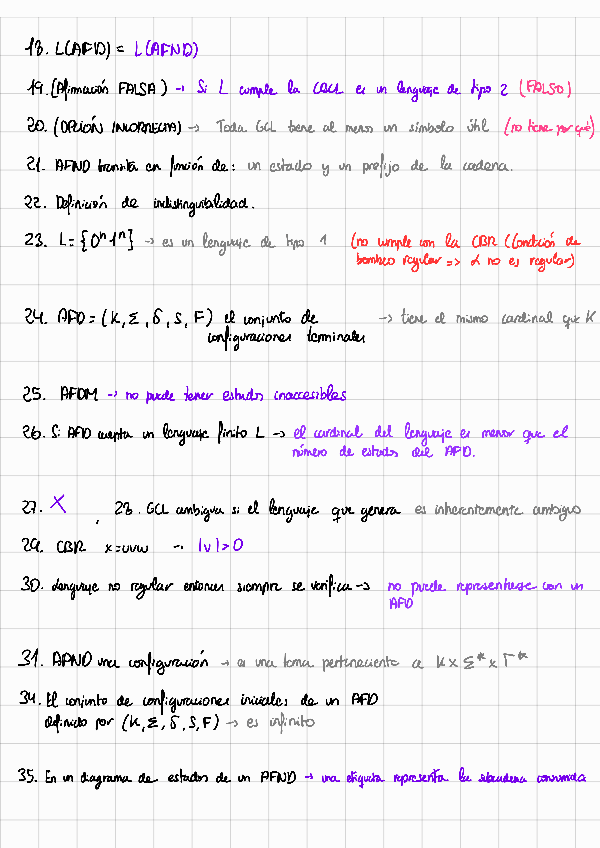 18. L(AFD) = L(AFND)
19. (Afirmación FALSA) → Si L cumple la CBCL es un lenguaje de tipo 2 (FALSO)
20. (OPCIÓN INCORRECTA) → Toda GCL tiene al menos un símbolo útil (no tiene por qué)
21. AFND transita en función de: un estado y un prefijo de la cadena.
22. Definición de indistinguibilidad.
23. L = {0ⁿ1ⁿ} → es un lenguaje de tipo 1 (no cumple con la CBR (Condición de
bombeo regular => L no es regular)
24. AFD = (K, Σ, δ, S, F) el conjunto de → tiene el mismo cardinal que K
configuraciones terminales
25. AFDM → no puede tener estados inaccesibles
26. Si AFD acepta un lenguaje finito L → el cardinal del lenguaje es menor que el
número de estados del AFD.
27. X , 28. GCL ambigua si el lenguaje que genera es inherentemente ambiguo
29. CBR x=uvw → |v|>0
30. Lenguaje no regular entonces siempre se verifica → no puede representarse con un
AFD
31. APND una configuración → es una terna perteneciente a K x Σ* x Γ*
34. El conjunto de configuraciones iniciales de un AFD
definido por (K, Σ, δ, S, F) → es infinito
35. En un diagrama de estados de un AFND → una etiqueta representa la subcadena consumida